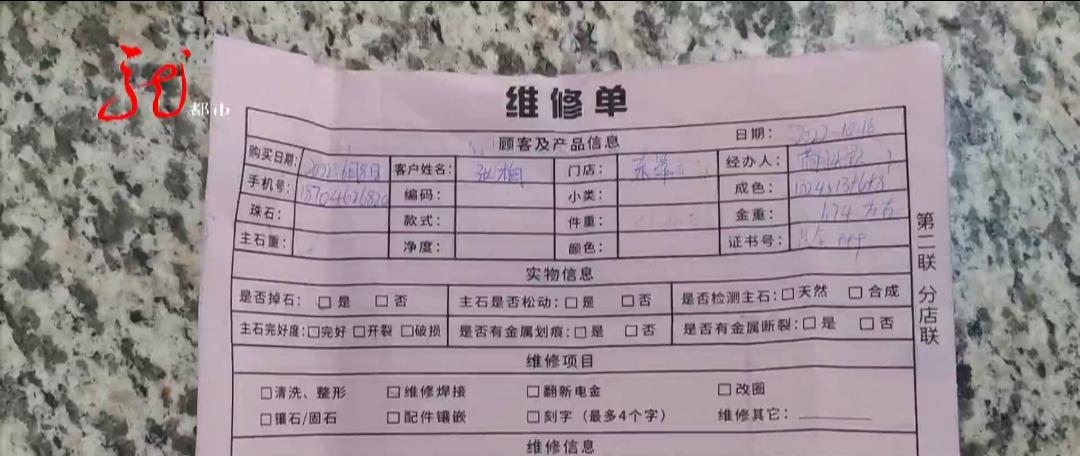 都市
维修单
顾客及产品信息 日期: 2022-10-16
购买日期: 2022年6月8日 客户姓名: 张梅 门店: 经办人:
手机号: 18704626820 编码: 小类: 成色:
珠石: 款式: 件重: 金重: 1.74
主石重: 净度: 颜色: 证书号:
实物信息
是否掉石: □是 □否 主石是否松动: □是 □否 是否检测主石: □天然 □合成
主石完好度: □完好 □开裂 □破损 是否有金属划痕: □是 □否 是否有金属断裂: □是 □否
维修项目
□清洗、整形 □维修焊接 □翻新电金 □改圈
□镶石/固石 □配件镶嵌 □刻字(最多4个字) 维修其它:
维修信息
第二联 分店联